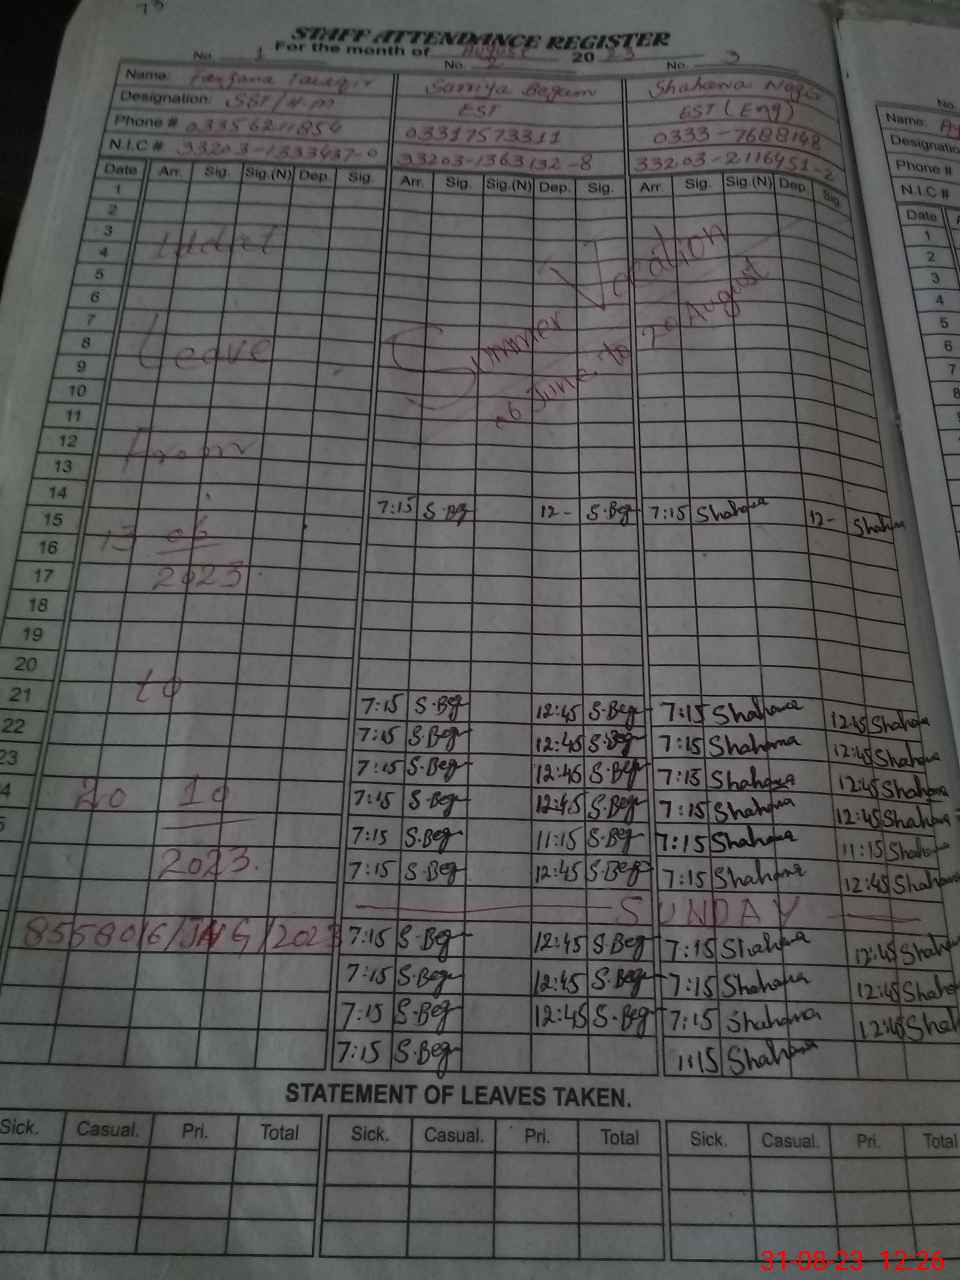 STAFF ATTENDANCE REGISTER
For the month of August 2023
No. 1 No. 2 No. 3
Name: Samiya Begum Shahana
Designation: SST/H.M EST EST (Eng)
Phone # 03317573311 0333-7688148
N.I.C # 33203-1333437-0 33203-1363132-8 33203-2116451-2
Date Arr. Sig. Sig.(N) Dep. Sig. Arr. Sig. Sig.(N) Dep. Sig. Arr. Sig. Sig.(N) Dep. Sig.
1
2
3
4
5
6
7
8
9
10
11
12
13
14
15
16
17
18
19
20
21
22
23
4
5
Leave
13 06
2023
to
20 10
2023.
Summer Vacation
06 June to 20 August
7:15 S.Beg 12- S.Beg 7:15 Shahana 12- Shahana
7:15 S.Beg 12:45 S.Beg 7:15 Shahana 12:45 Shahana
7:15 S.Beg 12:45 S.Beg 7:15 Shahana 12:45 Shahana
7:15 S.Beg 12:45 S.Beg 7:15 Shahana 12:45 Shahana
7:15 S.Beg 12:45 S.Beg 7:15 Shahana 12:45 Shahana
7:15 S.Beg 11:15 S.Beg 7:15 Shahana 11:15 Shahana
7:15 S.Beg 12:45 S.Beg 7:15 Shahana 12:45 Shahana
SUNDAY
7:15 S.Beg 12:45 S.Beg 7:15 Shahana 12:45 Shahana
7:15 S.Beg 12:45 S.Beg 7:15 Shahana 12:45 Shahana
7:15 S.Beg 12:45 S.Beg 7:15 Shahana 12:45 Shahana
7:15 S.Beg 7:15 Shahana
STATEMENT OF LEAVES TAKEN.
Sick. Casual. Pri. Total Sick. Casual. Pri. Total Sick. Casual. Pri. Total
No.
Name:
Designatio
Phone #
N.I.C #
Date
1
2
3
4
5
6
7
8
31-08-23 12:26